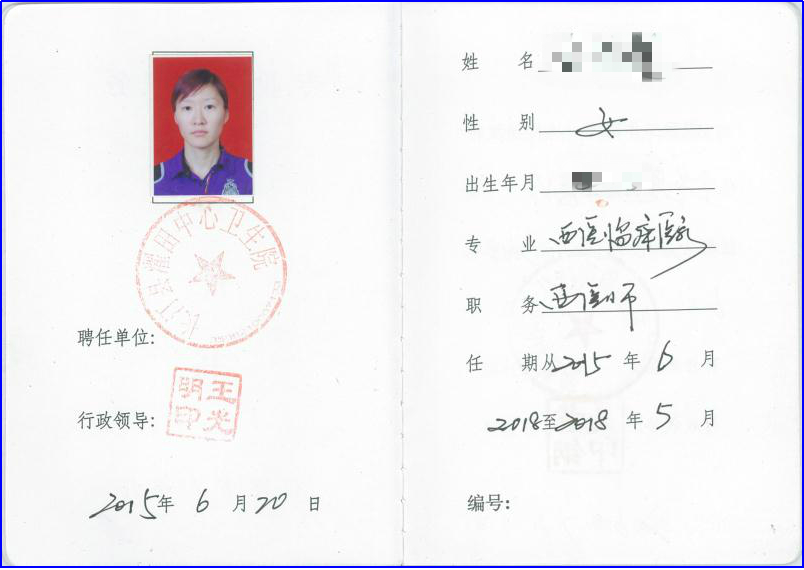 中心卫生院
聘任单位:
王光明印
行政领导:
2015年 6 月 20 日
姓 名
性 别 女
出生年月
专 业 西医临床医
职 务 西医师
任 期从2015 年 6 月
2018至2018 年 5 月
编号: